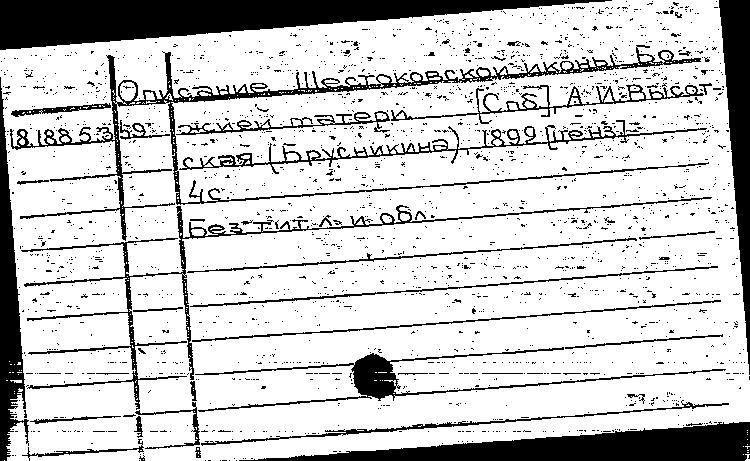 Описание Шестоковской иконы Бо-
18.188.5.359. жией матери. [Спб], А.И. Высот-
ская (Брусникина), 1899 [ценз]
4с.
Без тит. л. и обл.